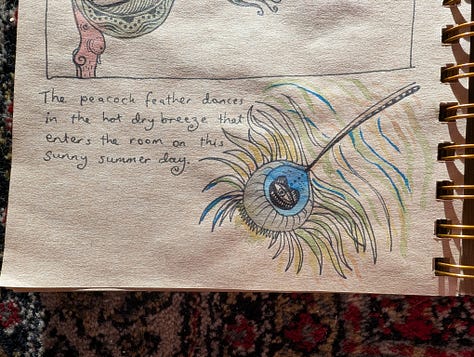 The peacock feather dances
in the hot dry breeze that
enters the room on this
sunny summer day.